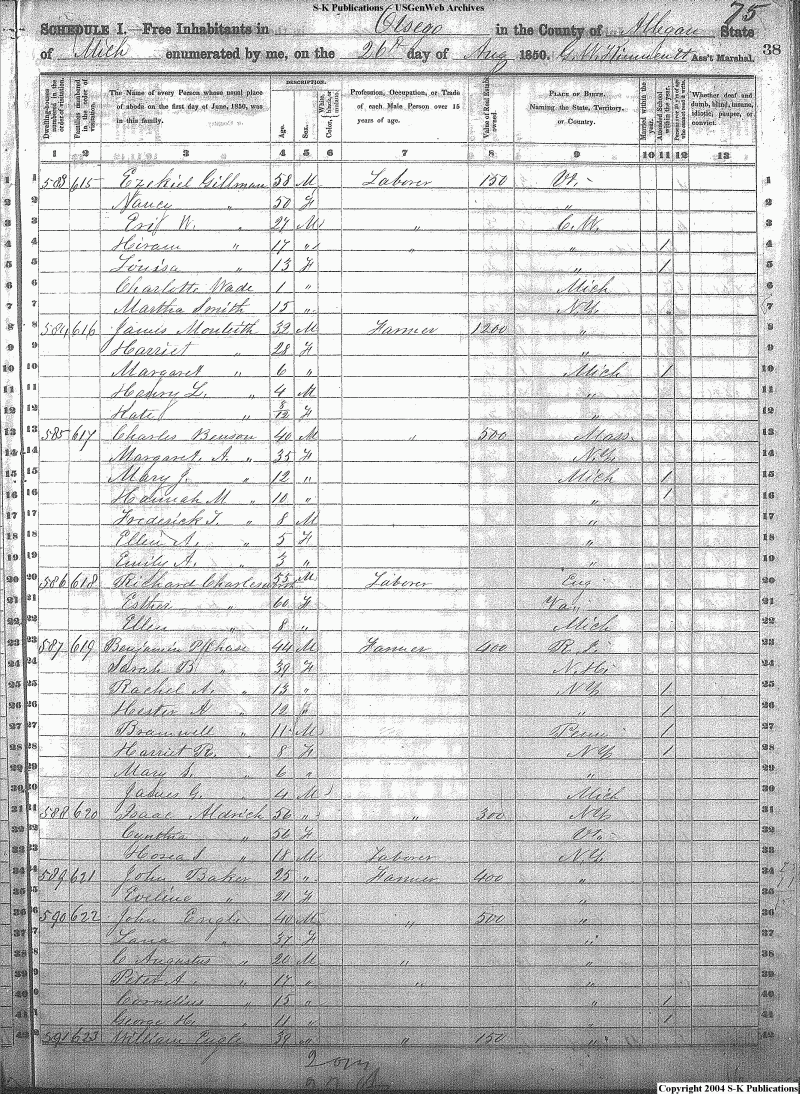 S-K Publications - USGenWeb Archives
75
SCHEDULE I.—Free Inhabitants in Otsego in the County of Allegan State
of Mich enumerated by me, on the 26th day of Aug 1850. Ass't Marshal. 38
Dwelling-houses numbered in the order of visitation.
Families numbered in the order of visitation.
The Name of every Person whose usual place of abode on the first day of June, 1850, was in this family.
DESCRIPTION.
Age.
Sex.
Color, White, black, or mulatto.
Profession, Occupation, or Trade of each Male Person over 15 years of age.
Value of Real Estate owned.
PLACE OF BIRTH. Naming the State, Territory, or Country.
Married within the year.
Attended School within the year.
Persons over 20 y'rs of age who cannot read & write.
Whether deaf and dumb, blind, insane, idiotic, pauper, or convict.
1 2 3 4 5 6 7 8 9 10 11 12 13
1 583 615 Ezekiel Gillman 58 M Laborer 150 Vt. 1
2 Nancy " 50 F " 2
3 W. " 27 M " C.W. 3
4 Hiram " 17 " " " 1 4
5 Louisa " 13 F " 1 5
6 Charlotte Wade 1 " Mich 6
7 Martha Smith 15 " N.Y. 7
8 584 616 James Monteith 32 M Farmer 1200 " 8
9 Harriet " 28 F " 9
10 Margaret " 6 " Mich 1 10
11 Henry L. " 4 M " 11
12 Kate " 8/12 F " 12
13 585 617 Charles Benson 40 M " 500 Mass 13
14 Margaret A. " 35 F N.Y. 14
15 Mary J. " 12 " Mich 1 15
16 Hannah M " 10 " " 1 16
17 Frederick T. " 8 M " 17
18 Ellen A. " 5 F " 18
19 Emily A. " 3 " " 19
20 586 618 Richard Charlesworth 55 M Laborer Eng 20
21 Esther " 60 F Va 21
22 Ellen " 8 " Mich 22
23 587 619 Benjamin P Chase 44 M Farmer 400 R.I. 23
24 Sarah B " 39 F N.H. 24
25 Rachel A. " 13 " N.Y. 1 25
26 Hester A " 12 " " 1 26
27 Bramwell " 11 M Penn 1 27
28 Harriet R. " 8 F N.Y. 1 28
29 Mary S. " 6 " " 29
30 James G. " 4 M Mich 30
31 588 620 Isaac Aldrich 56 " 300 N.Y. 31
32 Cynthia " 56 F Vt. 32
33 Hosea S " 18 M Laborer N.Y. 33
34 589 621 John Baker 25 " Farmer 400 " 34
35 Eveline " 21 F " 35
36 590 622 John Engle 40 M " 500 " 36
37 Lana " 37 F " 37
38 C Augustus " 20 M " " 38
39 Peter A. " 17 " " " 39
40 Cornelius " 15 " " 1 40
41 George H. " 11 " " 1 41
42 591 623 William Engle 39 " " 150 " 42
Copyright 2004 S-K Publications